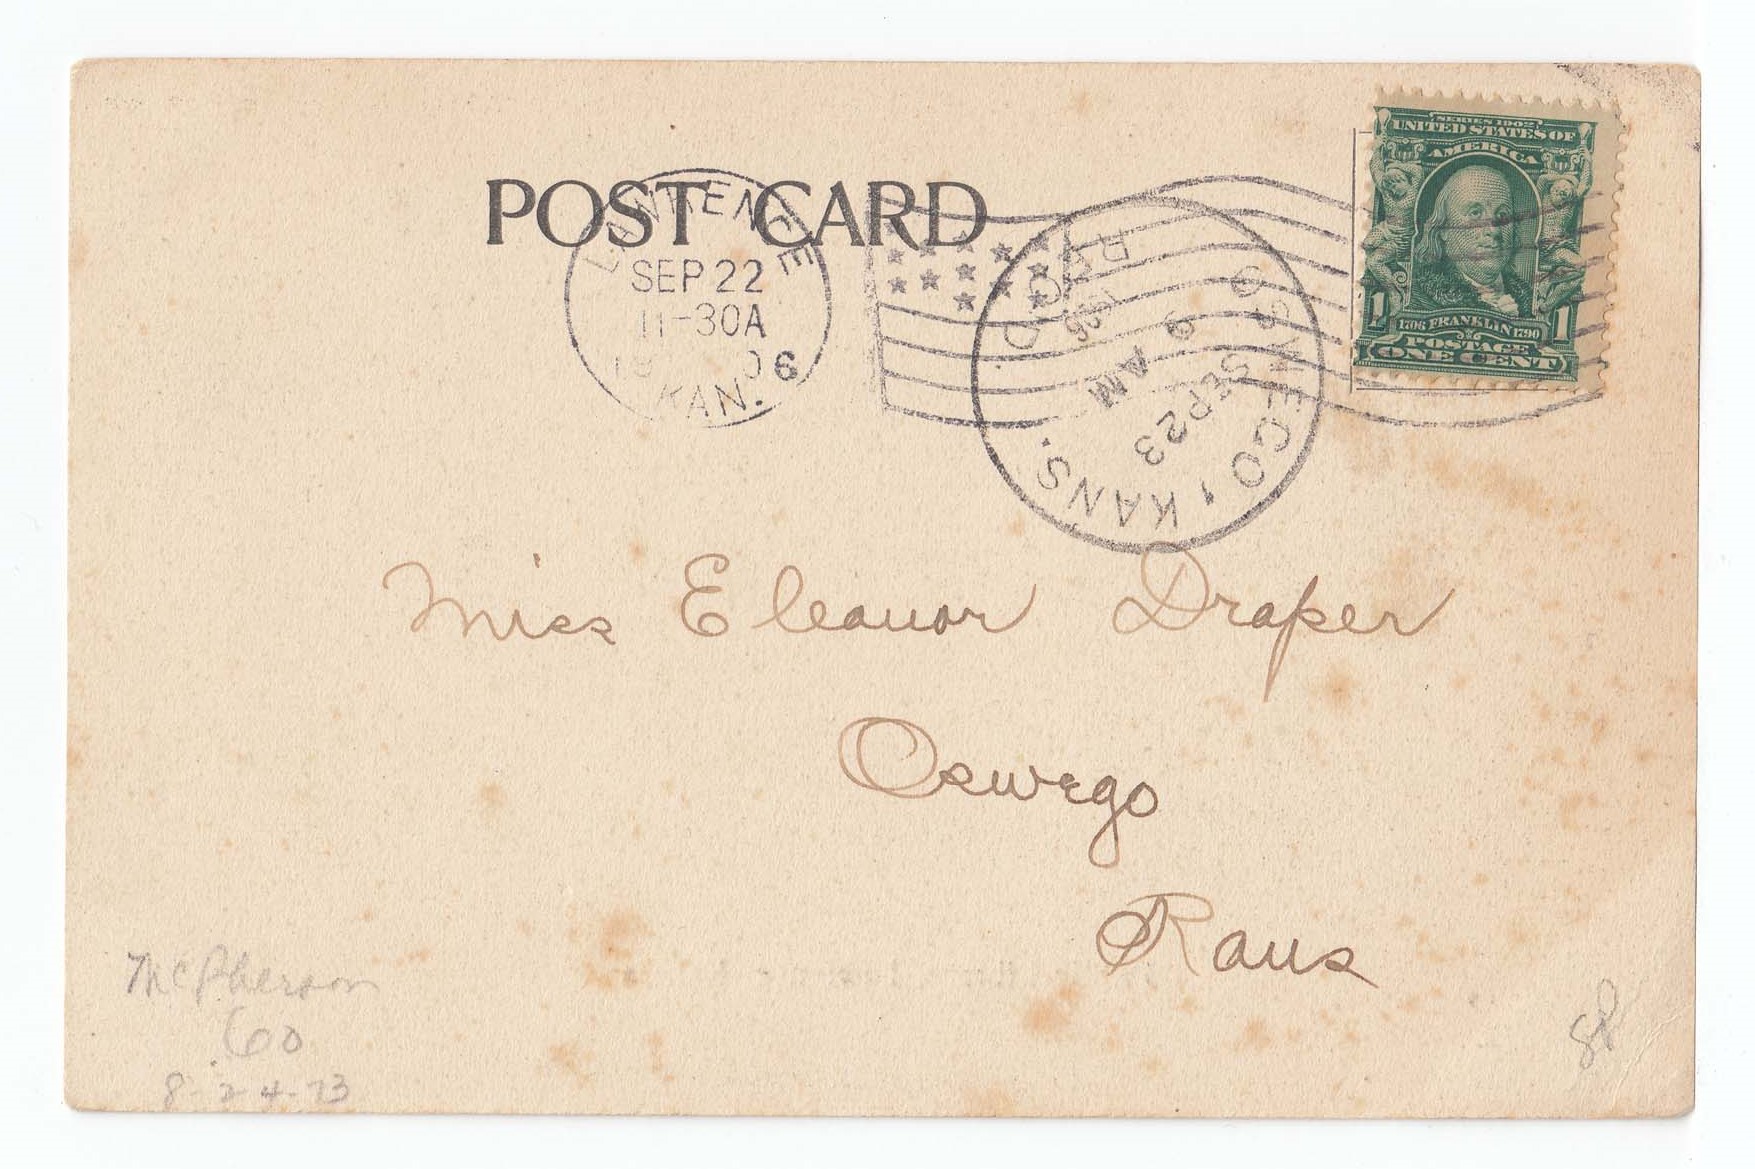 POST CARD
SEP 22
11-30A
1906
KAN.
SERIES 1902
UNITED STATES OF
AMERICA
1 1
1706 FRANKLIN 1790
POSTAGE
ONE CENT
OSWEGO, KANS.
SEP 23
9 AM
1906
REC'D
Miss Eleanor Draper
Oswego
Kans
McPherson
60
8-24-73